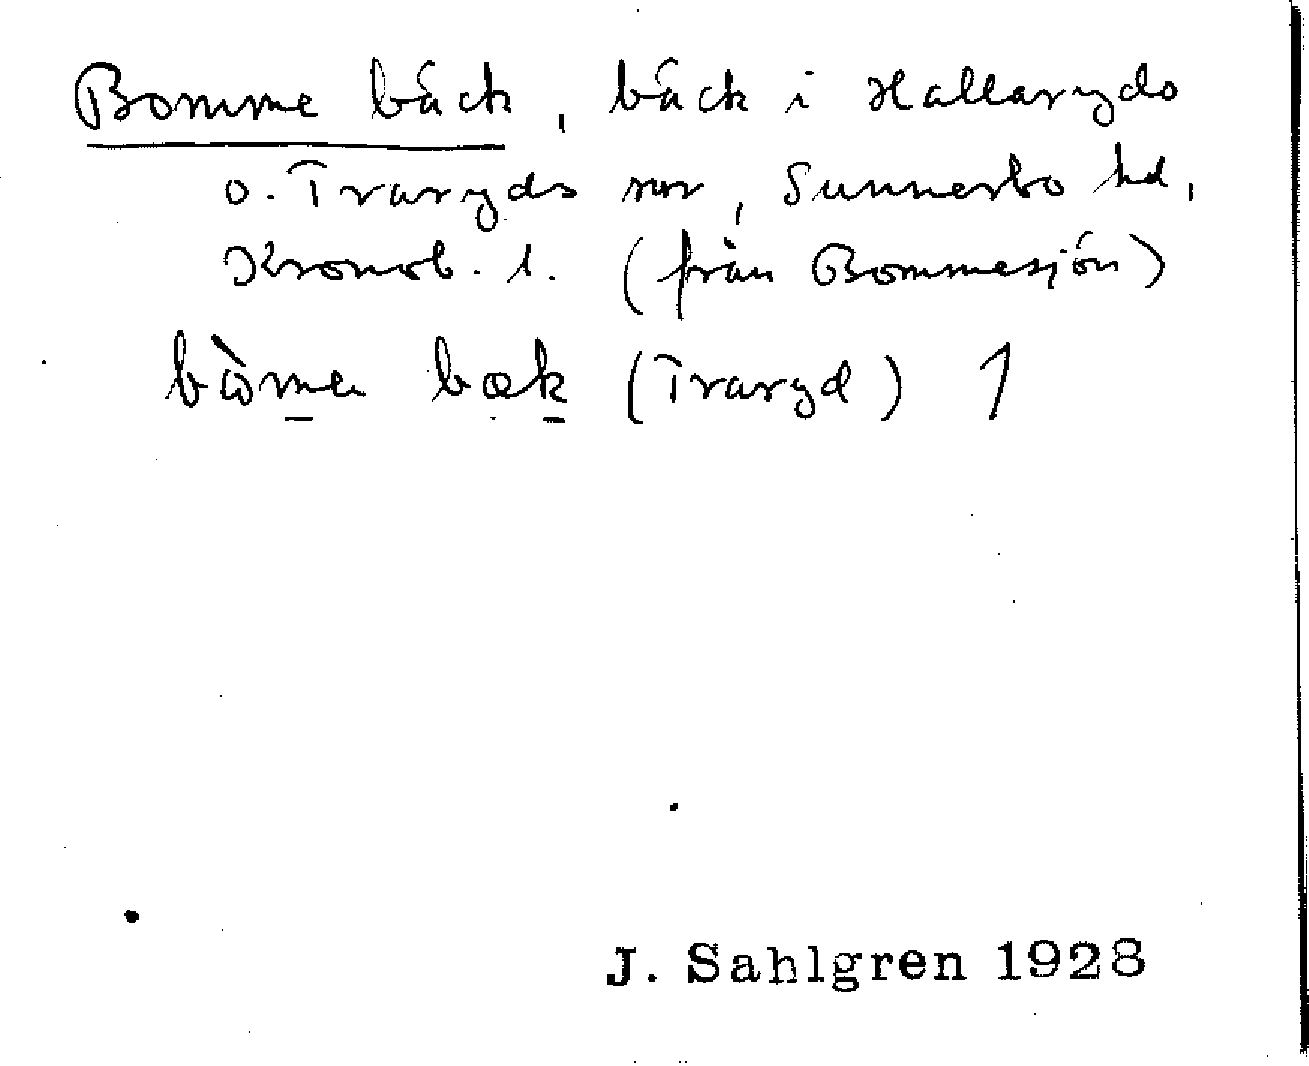 Bomme bäck, bäck i Hallaryds
o. Traryds snr, Sunnerbo hd,
Kronob. l. (från Bommesjön)
bòm̲a bæk̲ (Traryd) ↑
J. Sahlgren 1928